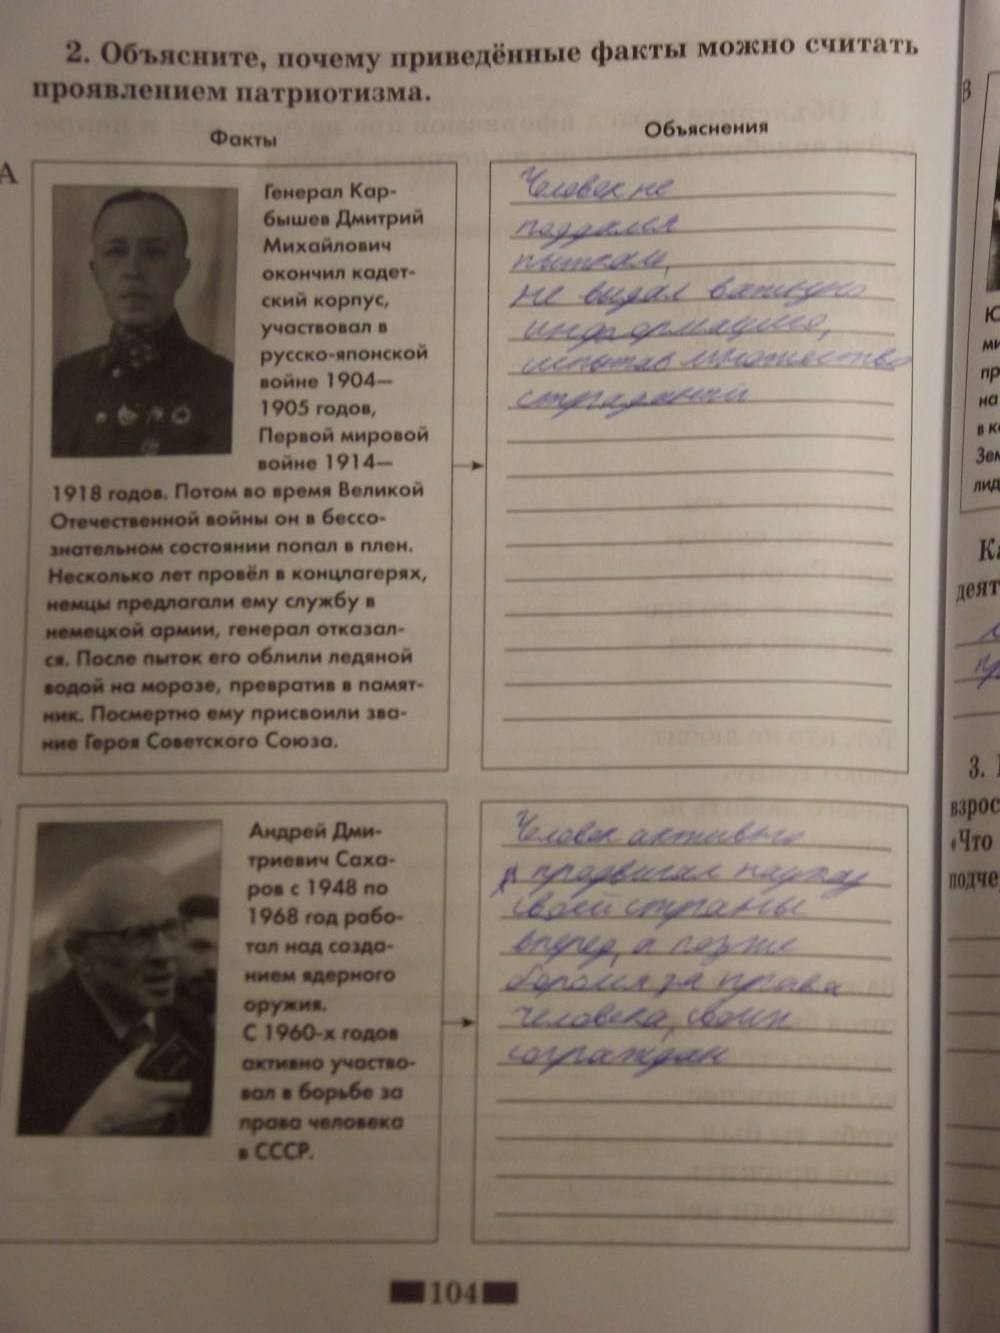 2. Объясните, почему приведённые факты можно считать
проявлением патриотизма.
Факты
Объяснения
А
Генерал Кар-
бышев Дмитрий
Михайлович
окончил кадет-
ский корпус,
участвовал в
русско-японской
войне 1904—
1905 годов,
Первой мировой
войне 1914—
1918 годов. Потом во время Великой
Отечественной войны он в бессо-
знательном состоянии попал в плен.
Несколько лет провёл в концлагерях,
немцы предлагали ему службу в
немецкой армии, генерал отказал-
ся. После пыток его облили ледяной
водой на морозе, превратив в памят-
ник. Посмертно ему присвоили зва-
ние Героя Советского Союза.
Человек не
поддался
пыткам,
не выдал важную
информацию,
испытав множество
страданий
Андрей Дми-
триевич Саха-
ров с 1948 по
1968 год рабо-
тал над созда-
нием ядерного
оружия.
С 1960-х годов
активно участво-
вал в борьбе за
права человека
в СССР.
Человек активно
продвигал науку
своей страны
вперед, а позже
боролся за права
человека, своих
сограждан
104
В
Ю
ми
пр
на
в к
Зем
лид
Ка
деят
3.
взрос
«Что
подче